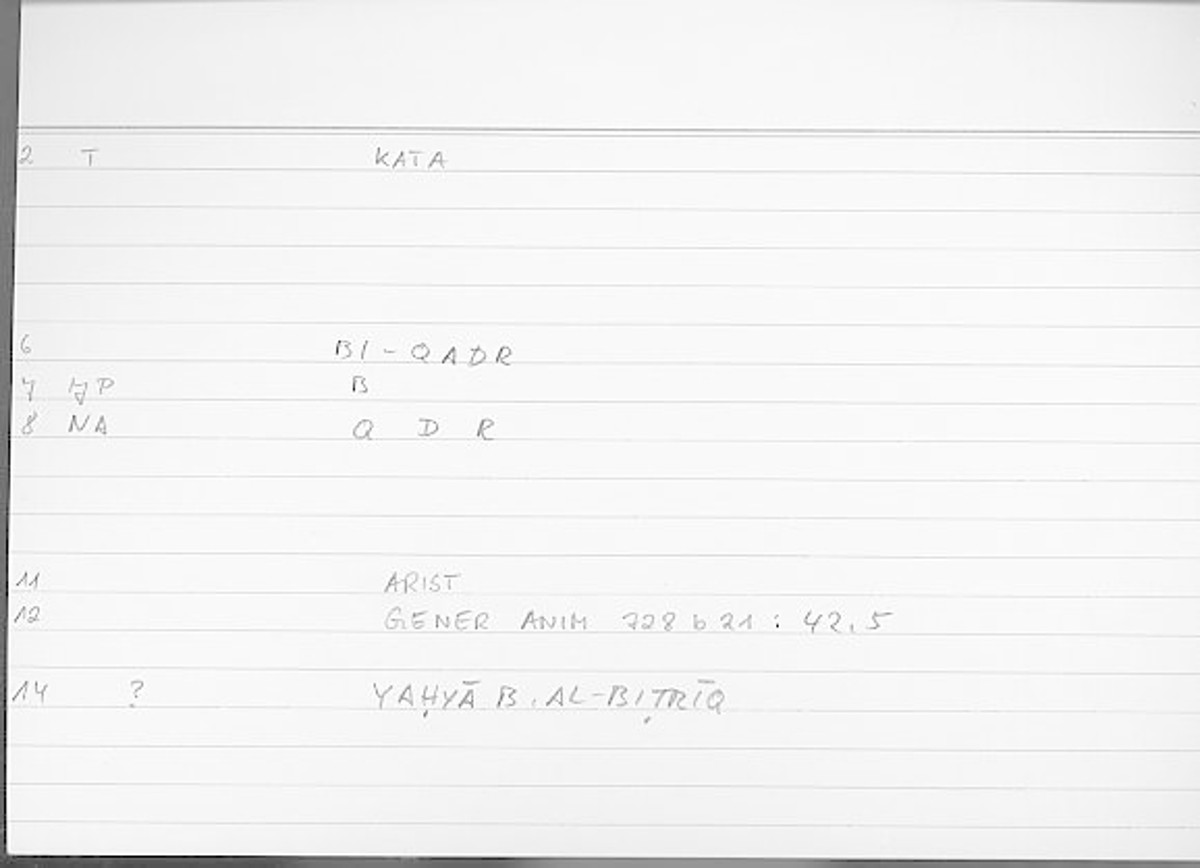 2 T KATA
6 BI-QADR
7 ḤP B
8 NA Q D R
11 ARIST
12 GENER ANIM 728 b 21 : 42,5
14 ? YAḤYĀ B. AL-BIṬRĪQ